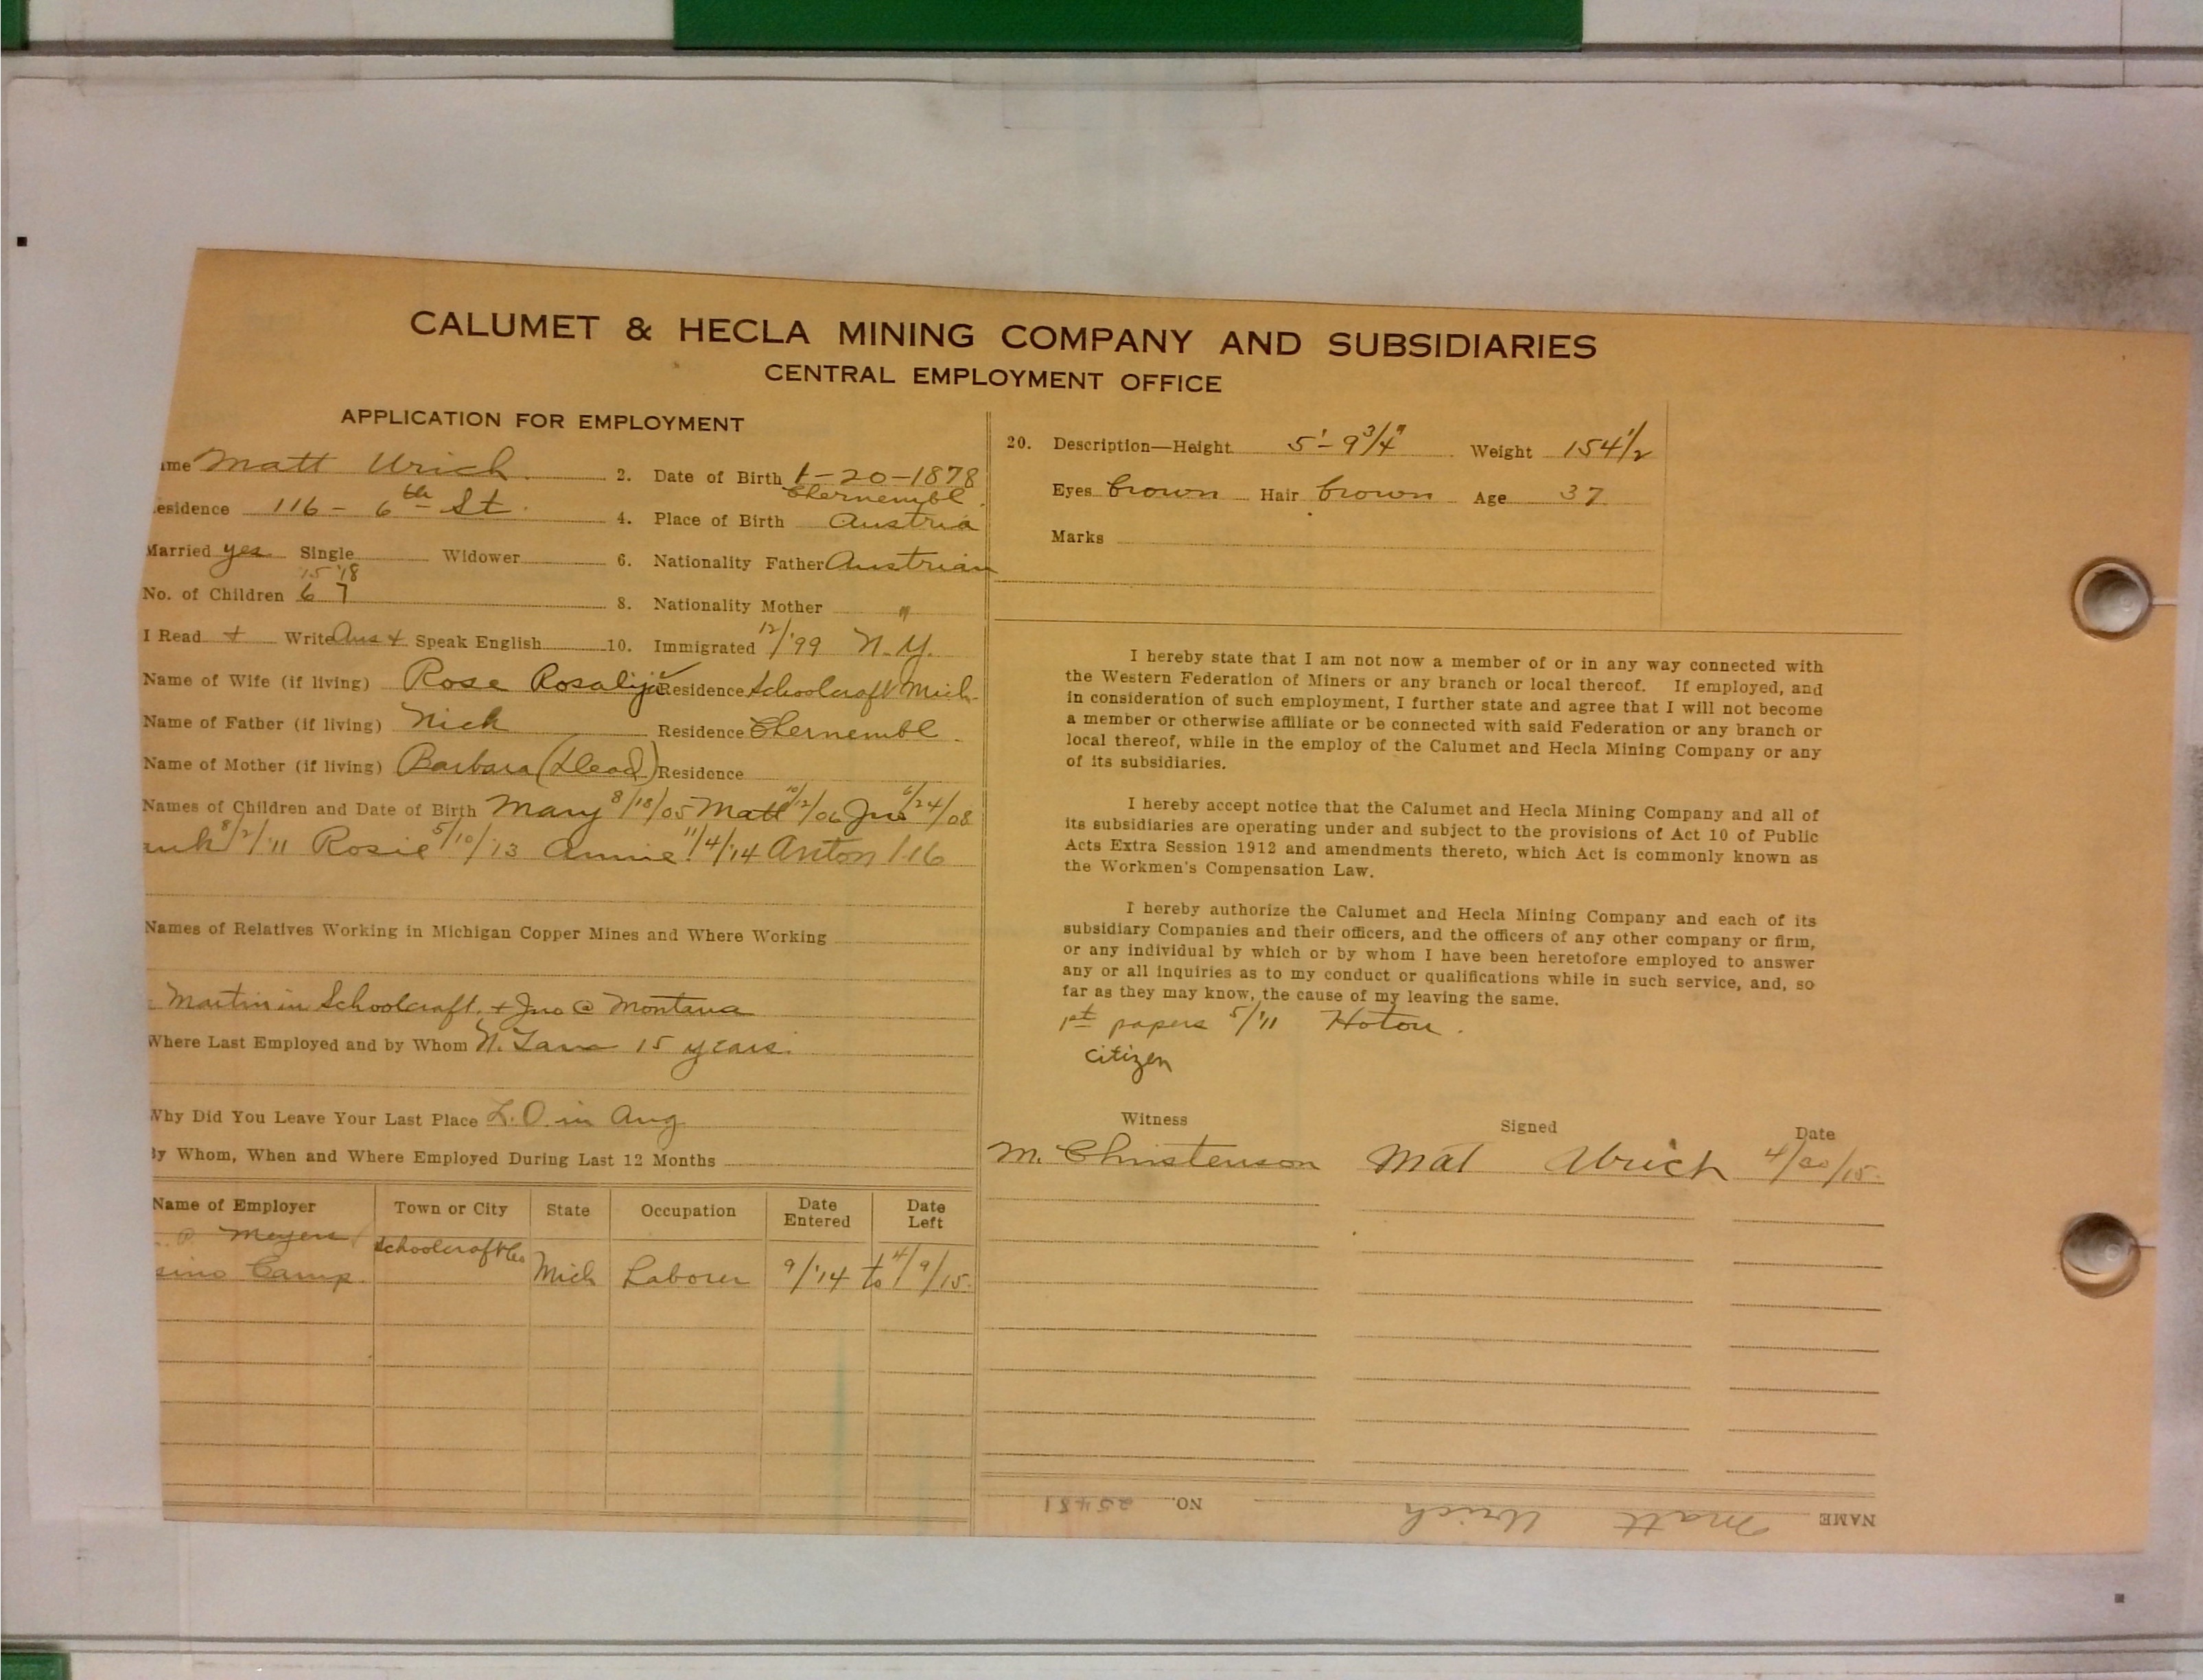 CALUMET & HECLA MINING COMPANY AND SUBSIDIARIES
CENTRAL EMPLOYMENT OFFICE
APPLICATION FOR EMPLOYMENT
ame Matt Urich 2. Date of Birth 1-20-1878
esidence 116 - 6th St. 4. Place of Birth Chernembl Austria
Married yes Single Widower 6. Nationality Father Austrian
'15 '18
No. of Children 6 7 8. Nationality Mother "
I Read + Write Aus + Speak English 10. Immigrated 12/'99 N.Y.
Name of Wife (if living) Rose Rosalija Residence Schoolcraft Mich
Name of Father (if living) Nick Residence Chernembl
Name of Mother (if living) Barbara (Dead) Residence
Names of Children and Date of Birth Mary 8/18/05 Matt 10/12/06 Jno 6/24/08
ank 8/2/'11 Rosie 5/10/'13 Annie 11/4/'14 Anton 1-16
Names of Relatives Working in Michigan Copper Mines and Where Working
Martin in Schoolcraft. + Jno @ Montana
Where Last Employed and by Whom N. Tam 15 years.
Why Did You Leave Your Last Place L.O. in Aug
By Whom, When and Where Employed During Last 12 Months
Name of Employer Town or City State Occupation Date Entered Date Left
Meyers Schoolcraft Co
sino Camp. Mich Laborer 9/'14 to 4/9/15.
20. Description—Height 5'-9 3/4" Weight 154 1/2
Eyes brown Hair brown Age 37
Marks
I hereby state that I am not now a member of or in any way connected with
the Western Federation of Miners or any branch or local thereof. If employed, and
in consideration of such employment, I further state and agree that I will not become
a member or otherwise affiliate or be connected with said Federation or any branch or
local thereof, while in the employ of the Calumet and Hecla Mining Company or any
of its subsidiaries.
I hereby accept notice that the Calumet and Hecla Mining Company and all of
its subsidiaries are operating under and subject to the provisions of Act 10 of Public
Acts Extra Session 1912 and amendments thereto, which Act is commonly known as
the Workmen's Compensation Law.
I hereby authorize the Calumet and Hecla Mining Company and each of its
subsidiary Companies and their officers, and the officers of any other company or firm,
or any individual by which or by whom I have been heretofore employed to answer
any or all inquiries as to my conduct or qualifications while in such service, and, so
far as they may know, the cause of my leaving the same.
1st papers 5/'11 Hoton.
citizen
Witness Signed Date
M. Christenson Mat Urich 4/20/15.
NAME Matt Urich NO. 25481